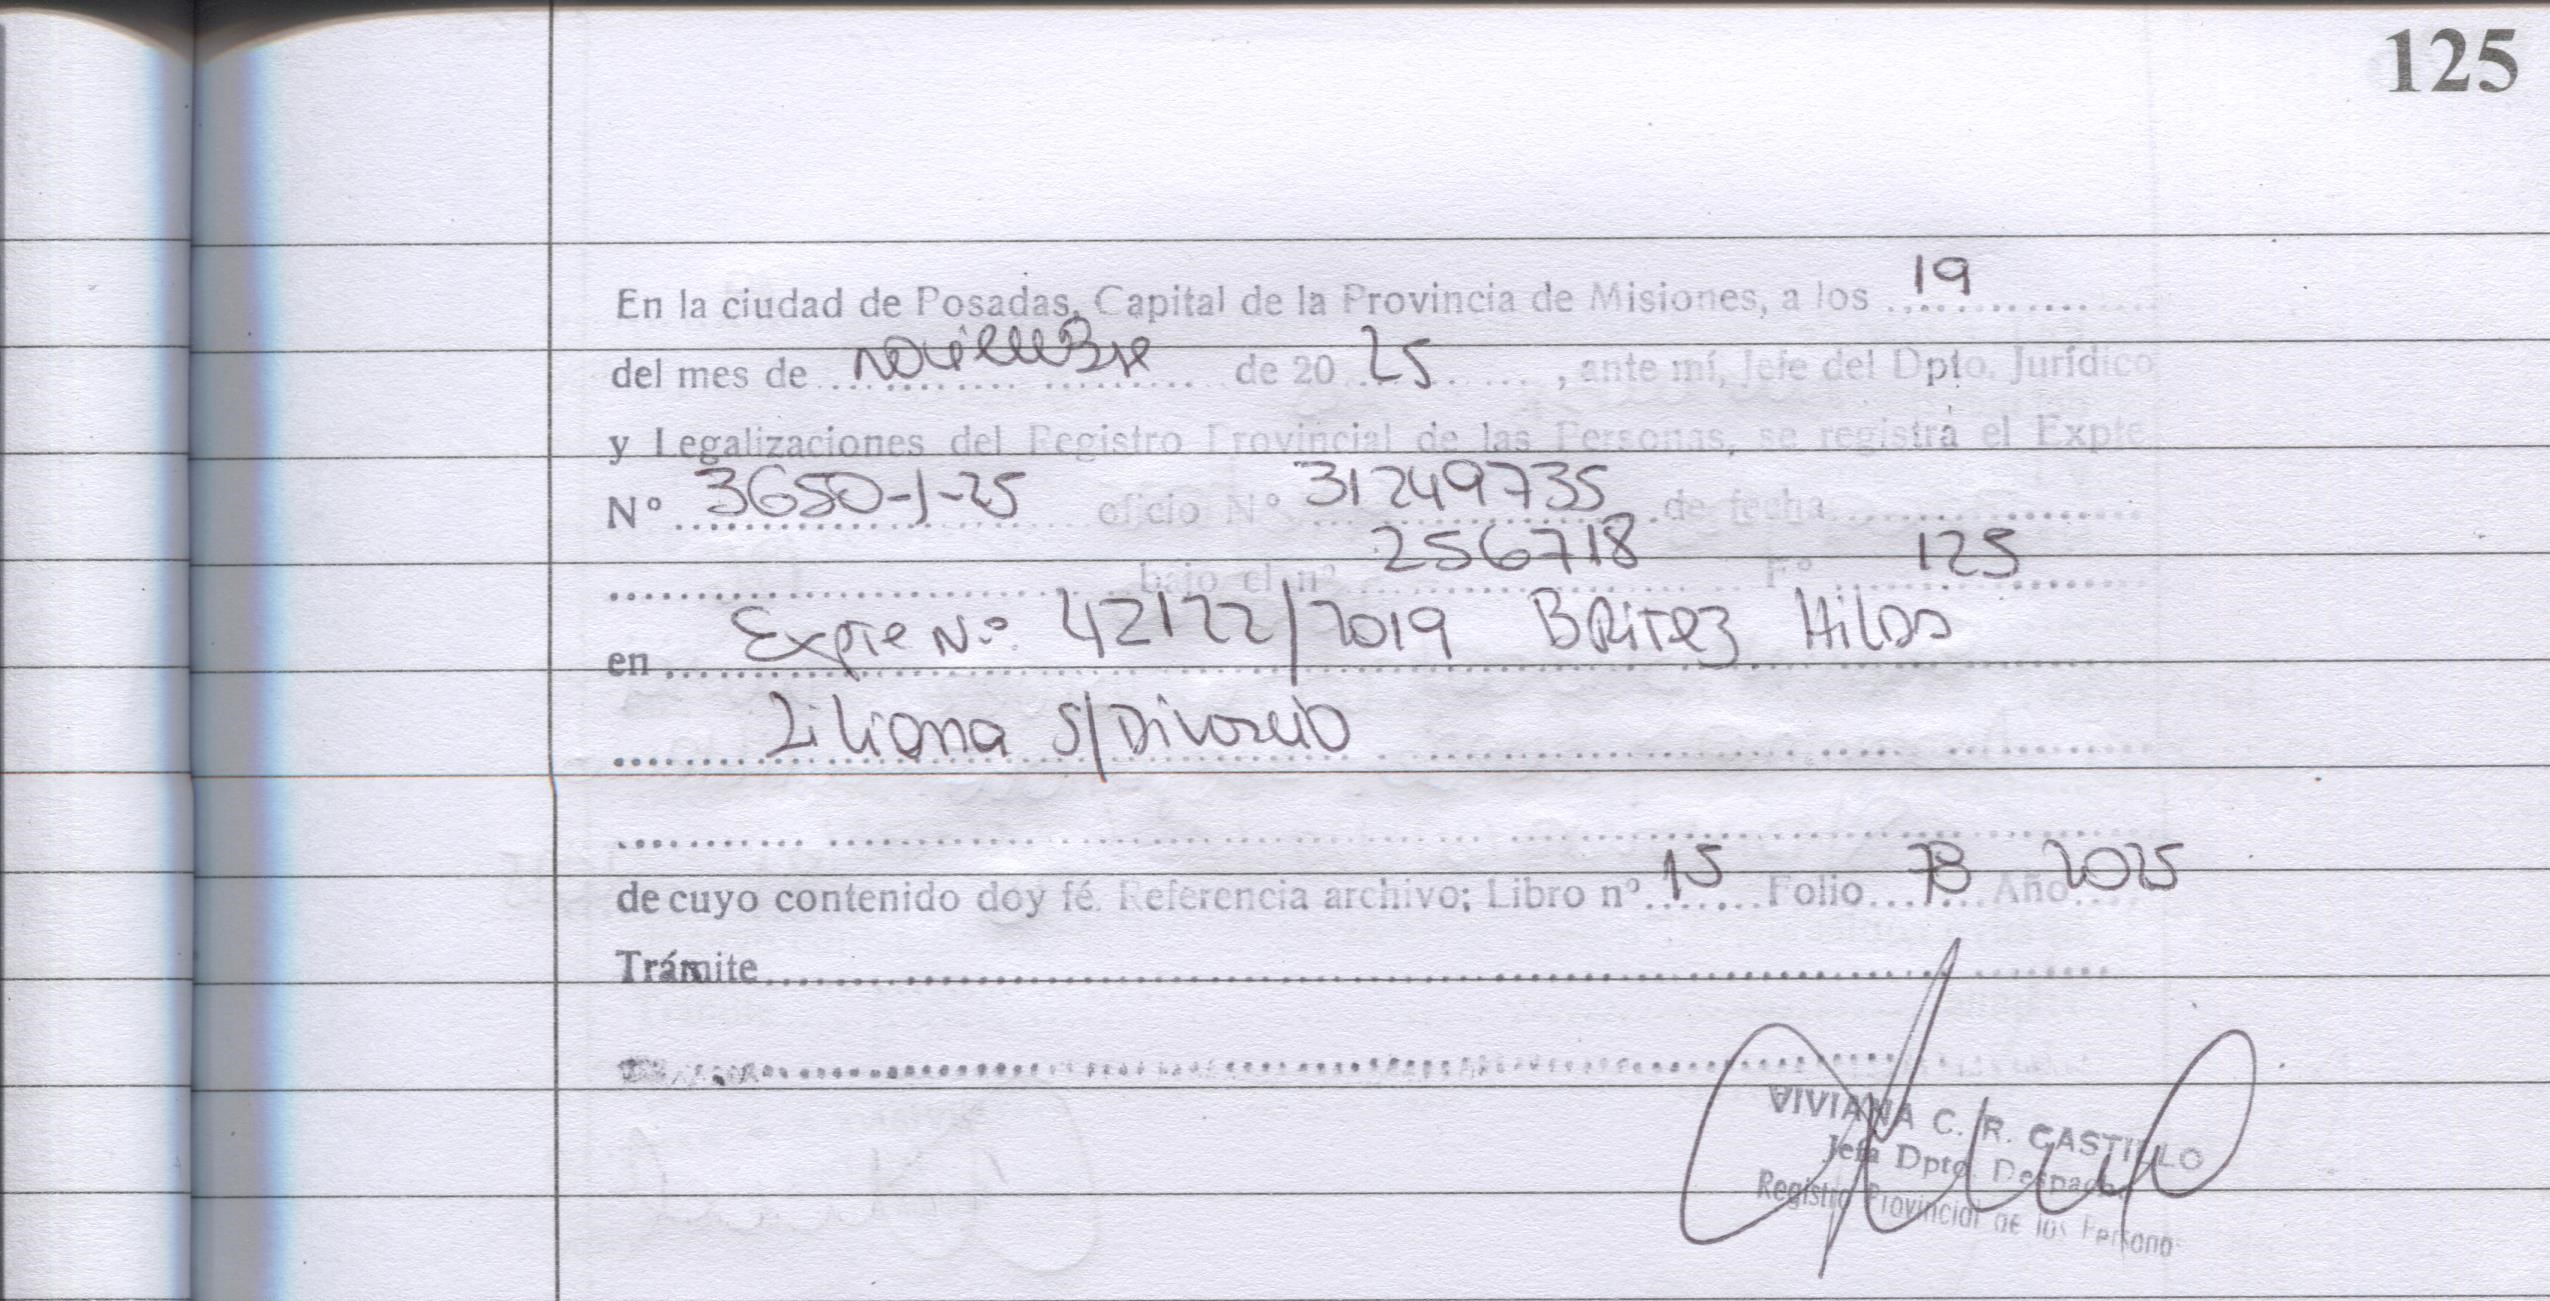 125
En la ciudad de Posadas, Capital de la Provincia de Misiones, a los 19
del mes de noviembre de 20 25, ante mí, Jefe del Dpto. Jurídico
y Legalizaciones del Registro Provincial de las Personas, se registra el Expte
Nº 3650-J-25 oficio Nº 31249735 de fecha
bajo el nº 256718 Fº 125
en Expte Nº: 42122/2019 BRITEZ Hilda
Liliana S/Divorcio
de cuyo contenido doy fé. Referencia archivo; Libro nº 15 Folio 78 Año 2025
Trámite
VIVIANA C. R. CASTILLO
Jefa Dpto. Despacho
Registro Provincial de las Personas